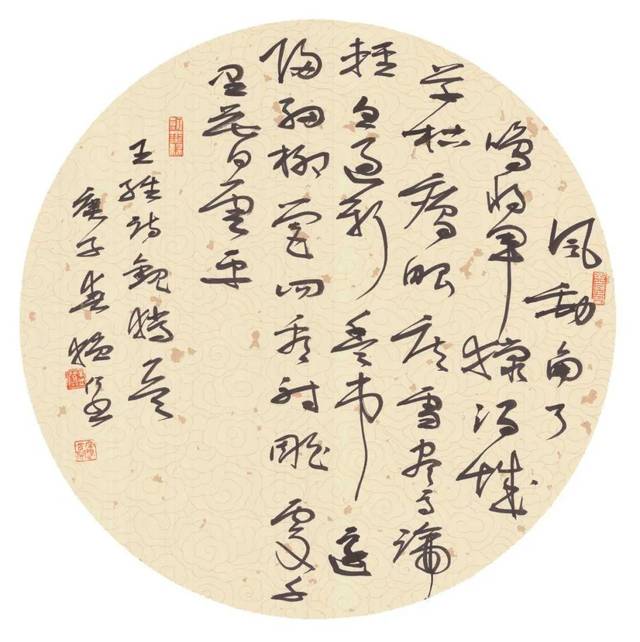 風勁角弓
鳴將軍獵渭城
草枯鷹眼疾雪盡馬蹄
輕忽過新豐市還
歸細柳營回看射雕處千
里暮雲平
王維詩觀獵
庚子春